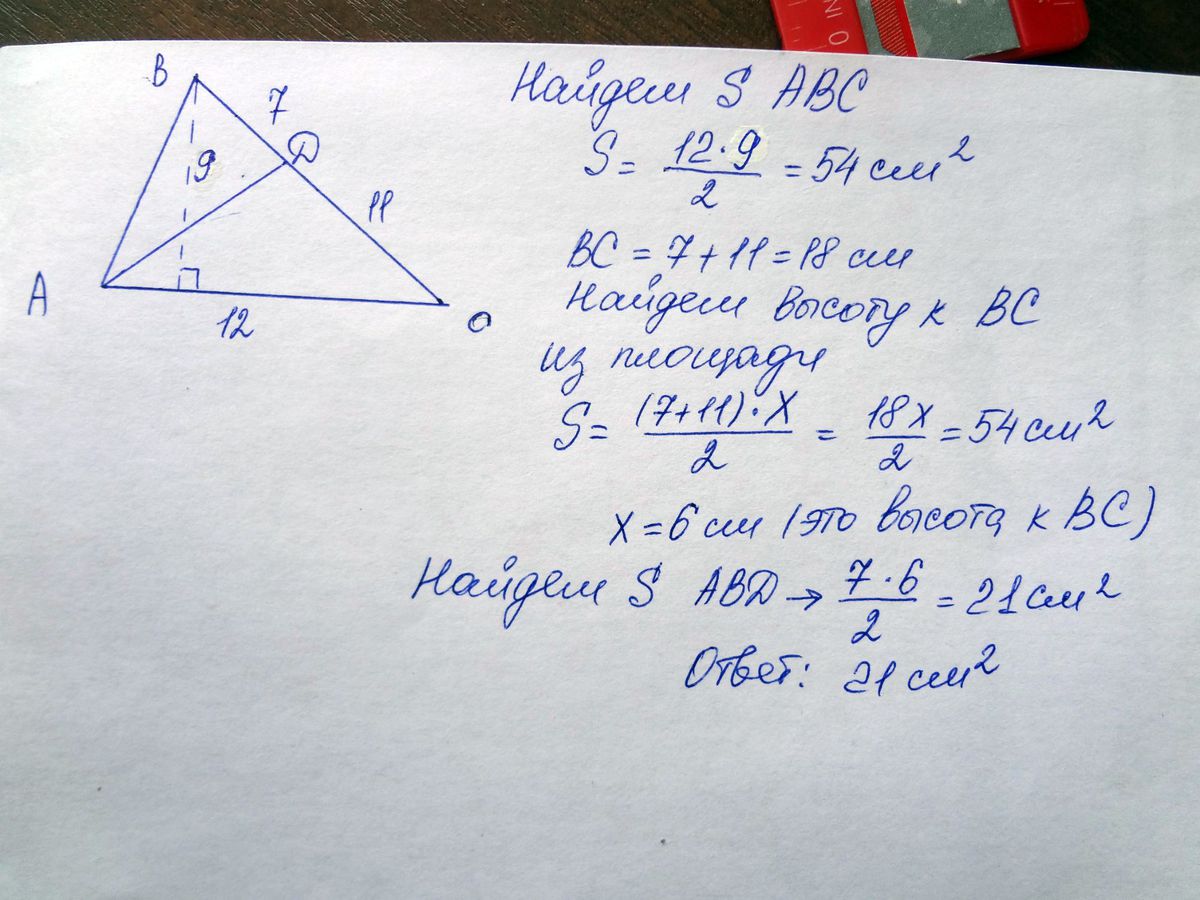 B
7
D
9
11
A
12
C
Найдем S ABC
S = 12·9/2 = 54 см²
BC = 7+11=18 см
Найдем высоту к BC
из площади
S = (7+11)·X/2 = 18X/2 = 54 см²
X = 6 см (это высота к BC)
Найдем S ABD → 7·6/2 = 21 см²
Ответ: 21 см²